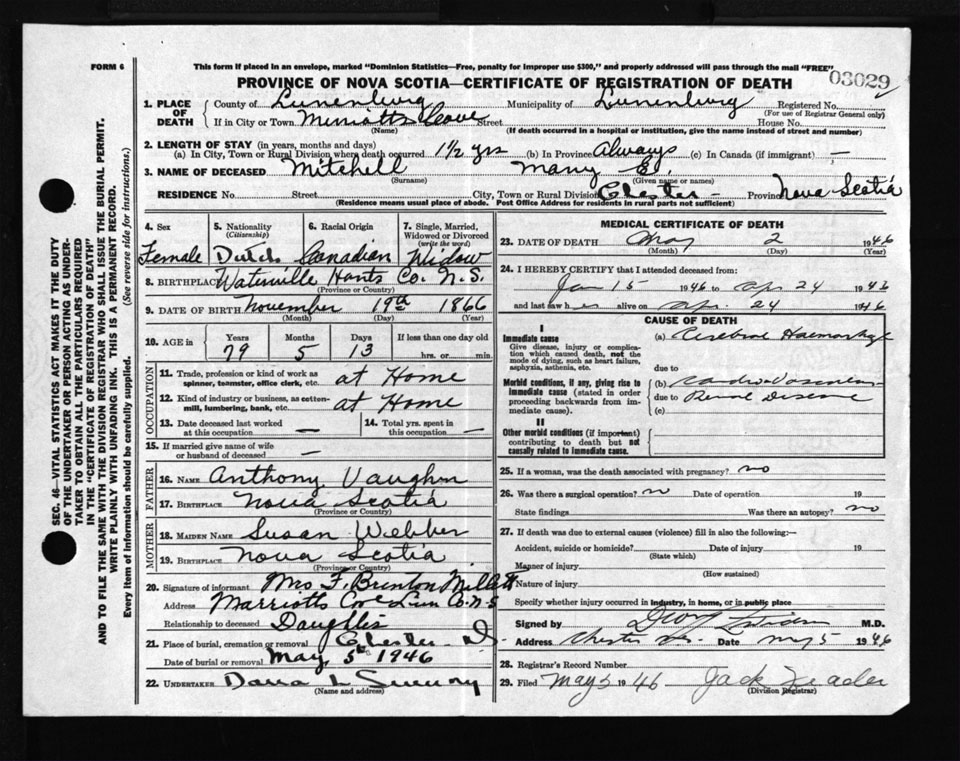 FORM 6
This form if placed in an envelope, marked "Dominion Statistics—Free, penalty for improper use $300," and properly addressed will pass through the mail "FREE"
PROVINCE OF NOVA SCOTIA—CERTIFICATE OF REGISTRATION OF DEATH
03029
1. PLACE OF DEATH County of Lunenburg Municipality of Lunenburg Registered No.
(For use of Registrar General only)
If in City or Town Cove Street House No.
(Name) (If death occurred in a hospital or institution, give the name instead of street and number)
2. LENGTH OF STAY (in years, months and days)
(a) In City, Town or Rural Division where death occurred 1½ yrs (b) In Province Always (c) In Canada (if immigrant) —
3. NAME OF DECEASED Mitchell Mary E.
(Surname) (Given name or names)
RESIDENCE No. Street City, Town or Rural Division Chester - Province Nova Scotia
(Residence means usual place of abode. Post Office Address for residents in rural parts not sufficient)
4. Sex Female
5. Nationality (Citizenship) Dutch
6. Racial Origin Canadian
7. Single, Married, Widowed or Divorced (write the word) Widow
8. BIRTHPLACE Waterville Hants Co. N.S.
(Province or Country)
9. DATE OF BIRTH November 19th 1866
(Month) (Day) (Year)
10. AGE in Years 79 Months 5 Days 13 If less than one day old hrs. or min.
OCCUPATION
11. Trade, profession or kind of work as spinner, teamster, office clerk, etc. at Home
12. Kind of industry or business, as cotton-mill, lumbering, bank, etc. at Home
13. Date deceased last worked at this occupation —
14. Total yrs. spent in this occupation —
15. If married give name of wife or husband of deceased —
FATHER
16. NAME Anthony Vaughn
17. BIRTHPLACE Nova Scotia
(Province or Country)
MOTHER
18. MAIDEN NAME Susan Webber
19. BIRTHPLACE Nova Scotia
(Province or Country)
20. Signature of informant Mrs F. Burton Millett
Address Marriotts Cove Lun Co. N-S
Relationship to deceased Daughter
21. Place of burial, cremation or removal Chester
Date of burial or removal May 5th 1946
22. UNDERTAKER
(Name and address)
MEDICAL CERTIFICATE OF DEATH
23. DATE OF DEATH May 2 1946
(Month) (Day) (Year)
24. I HEREBY CERTIFY that I attended deceased from:
Jan 15 1946 to Apr 24 1946
and last saw her alive on Apr. 24 1946
CAUSE OF DEATH
I
Immediate cause
Give disease, injury or complication which caused death, not the mode of dying, such as heart failure, asphyxia, asthenia, etc.
(a) Cerebral Haemorrhage
due to
Morbid conditions, if any, giving rise to immediate cause (stated in order proceeding backwards from immediate cause).
(b) Cardio-Vascular
due to Renal Disease
(c)
II
Other morbid conditions (if important) contributing to death but not causally related to immediate cause.
25. If a woman, was the death associated with pregnancy? no
26. Was there a surgical operation? no Date of operation 19
State findings Was there an autopsy? no
27. If death was due to external causes (violence) fill in also the following:—
Accident, suicide or homicide? Date of injury 19
(State which)
Manner of injury
(How sustained)
Nature of injury
Specify whether injury occurred in industry, in home, or in public place
Signed by M.D.
Address Chester Date May 5 1946
28. Registrar's Record Number
29. Filed May 5 1946 Jack
(Division Registrar)
SEC. 46—VITAL STATISTICS ACT MAKES IT THE DUTY OF THE UNDERTAKER OR PERSON ACTING AS UNDERTAKER TO OBTAIN ALL THE PARTICULARS REQUIRED IN THE "CERTIFICATE OF REGISTRATION OF DEATH" AND TO FILE THE SAME WITH THE DIVISION REGISTRAR WHO SHALL ISSUE THE BURIAL PERMIT.
WRITE PLAINLY WITH UNFADING INK. THIS IS A PERMANENT RECORD.
Every item of Information should be carefully supplied. (See reverse side for instructions.)